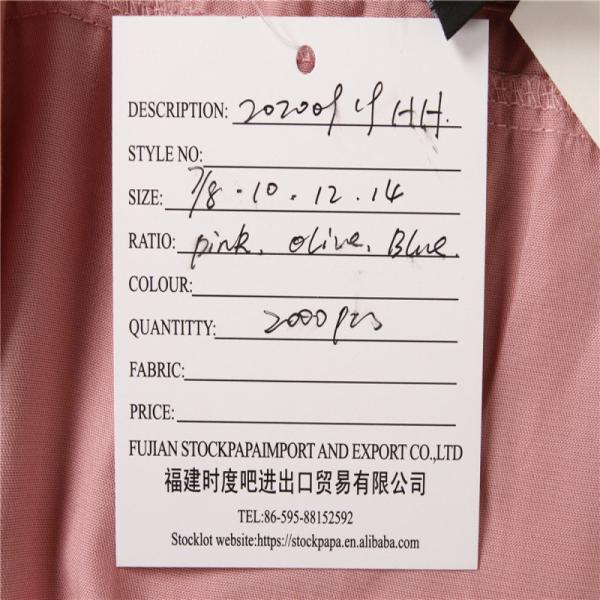 DESCRIPTION: 2020
STYLE NO:
SIZE: 7/8 . 10 . 12 . 14
RATIO: pink, olive, Blue.
COLOUR:
QUANTITTY: 2000pcs
FABRIC:
PRICE:
FUJIAN STOCKPAPAIMPORT AND EXPORT CO.,LTD
福建时度吧进出口贸易有限公司
TEL:86-595-88152592
Stocklot website:https://stockpapa.en.alibaba.com